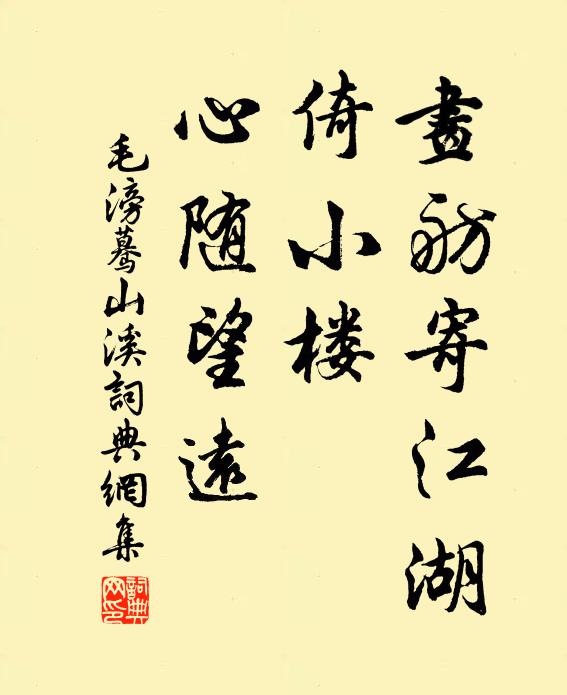 畫舫寄江湖
倚小楼
心随望遠
毛滂驀山溪詞典網集
詞典网印